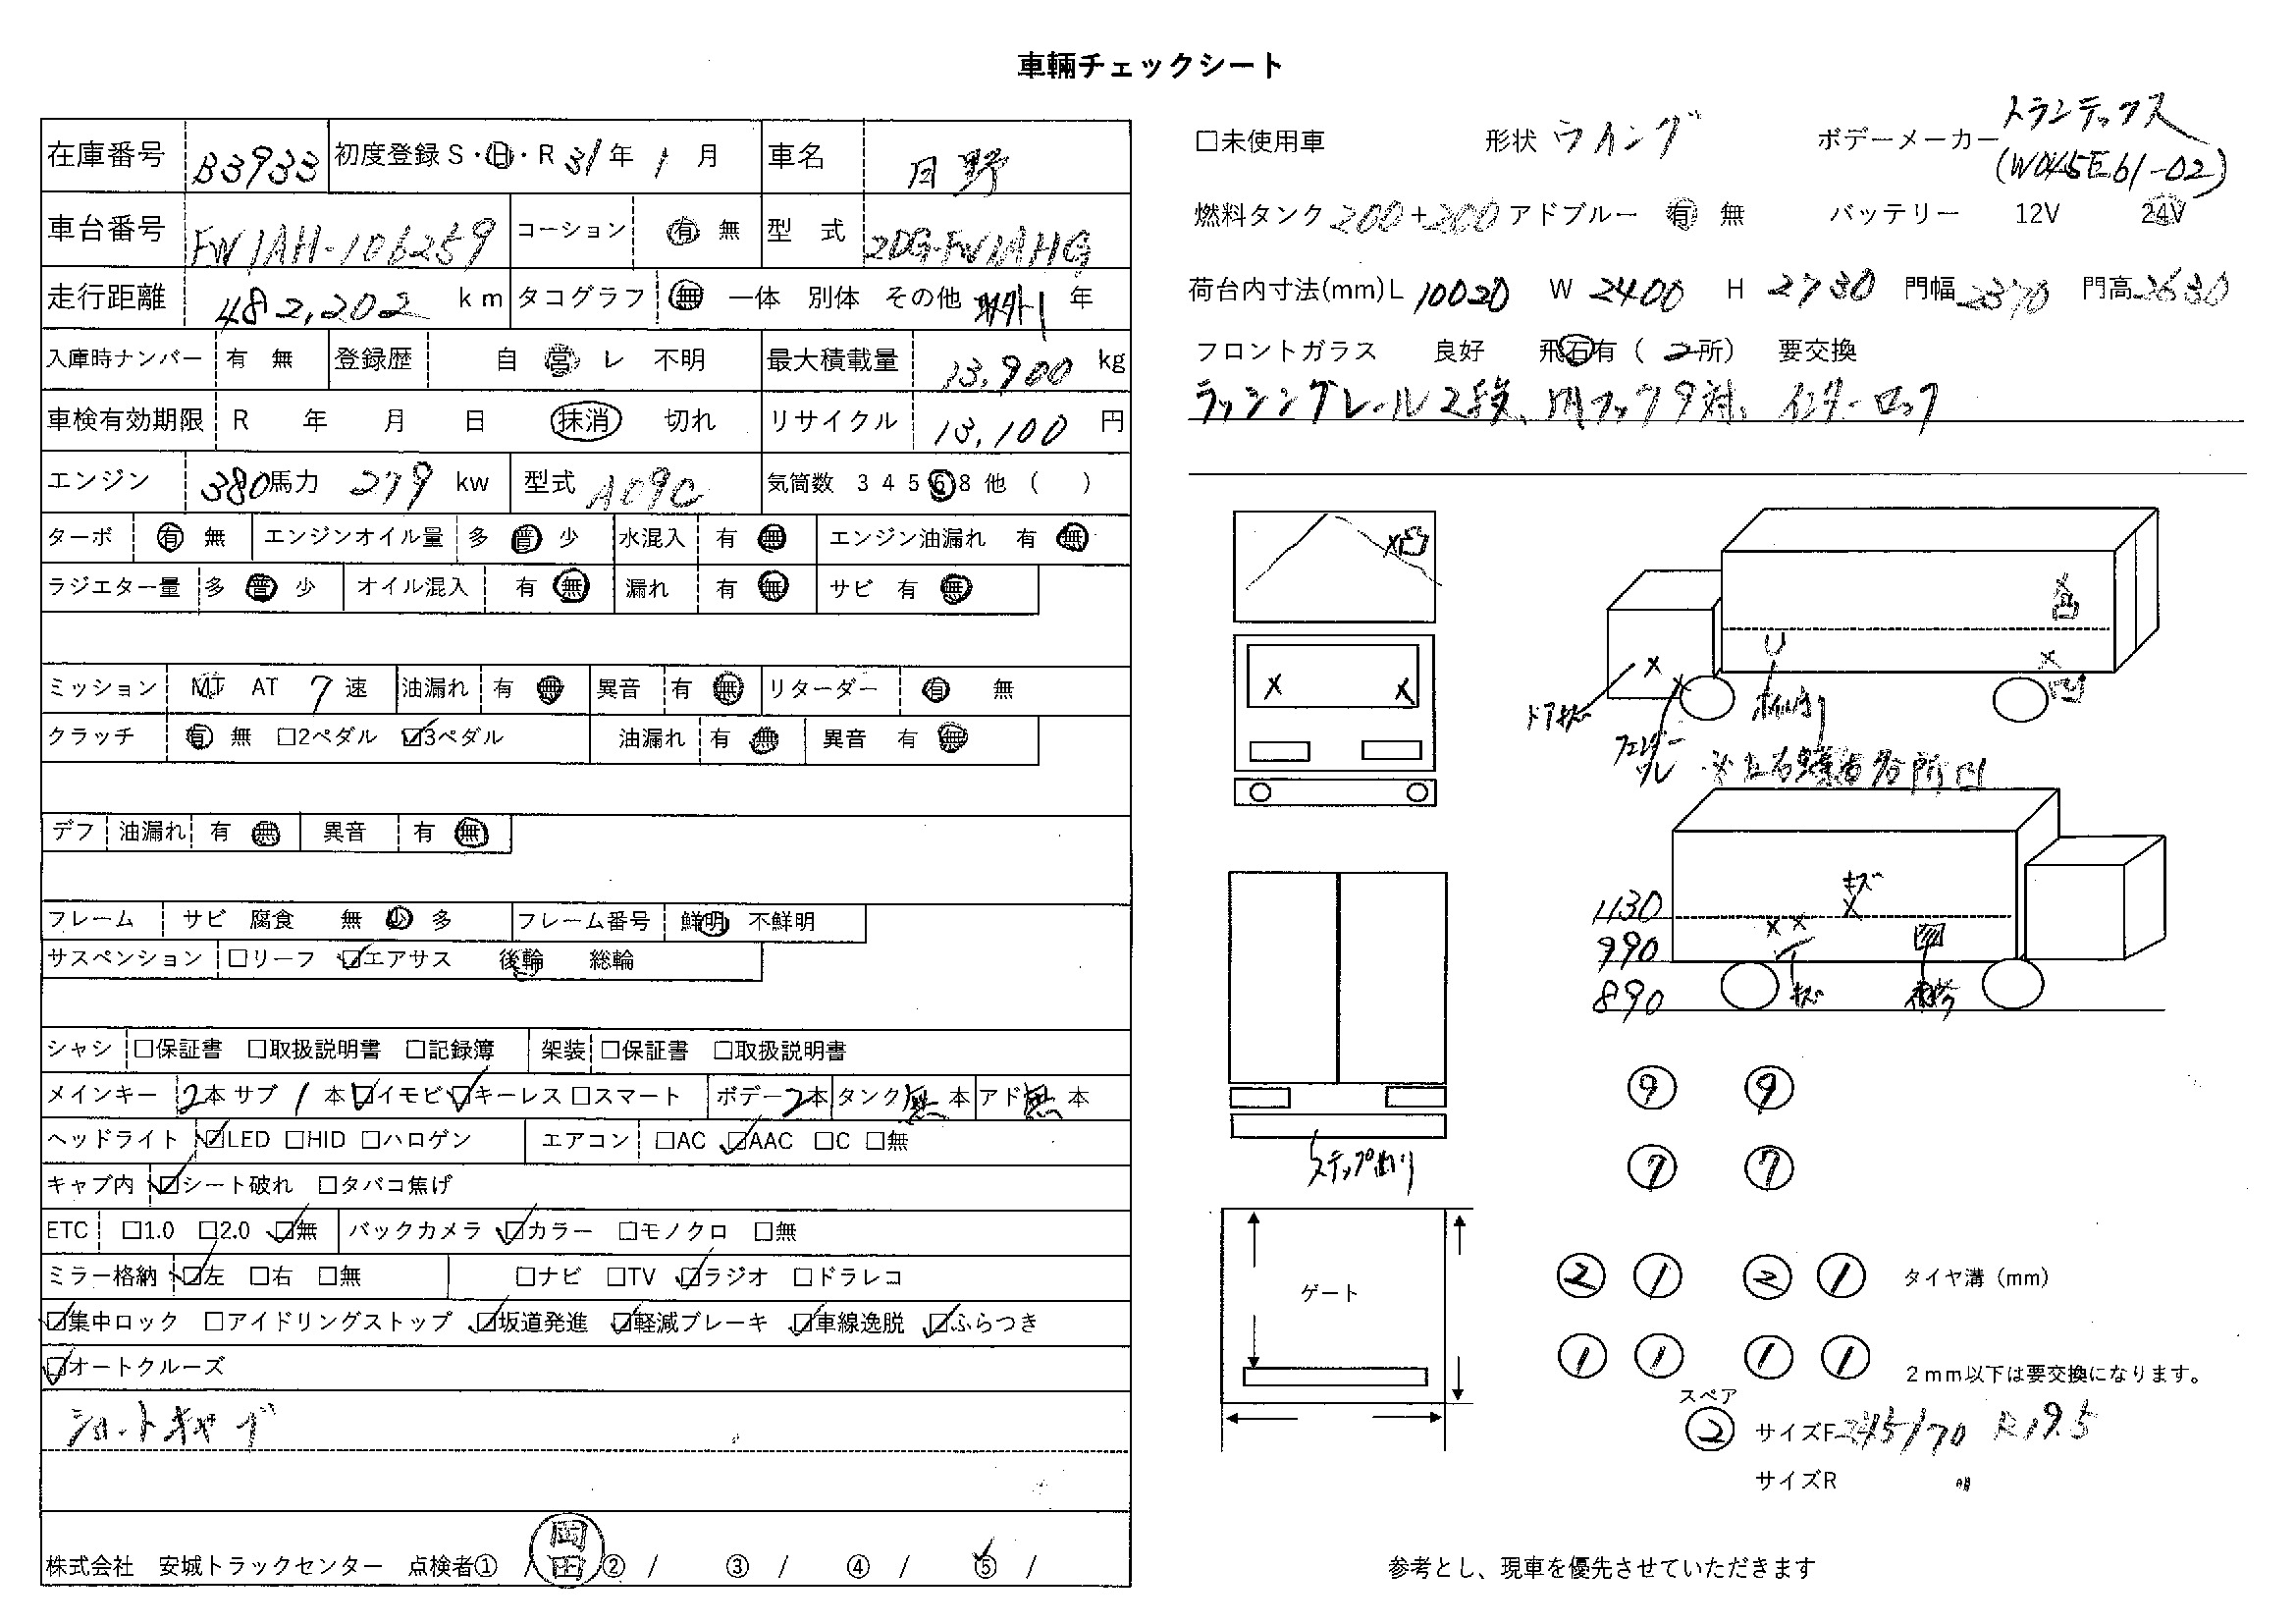 車輛チェックシート
在庫番号 B3933 初度登録 S・H・R 31年 1 月 車名 日野
車台番号 FW1AH-106259 コーション 有 無 型 式 2DG-FW1AHG
走行距離 482,202 km タコグラフ 無 一体 別体 その他 年
入庫時ナンバー 有 無 登録歴 自 営 レ 不明 最大積載量 13,900 kg
車検有効期限 R 年 月 日 抹消 切れ リサイクル 13,100 円
エンジン 380馬力 279 kw 型式 A09C 気筒数 3 4 5 6 8 他 ( )
ターボ 有 無 エンジンオイル量 多 普 少 水混入 有 無 エンジン油漏れ 有 無
ラジエター量 多 普 少 オイル混入 有 無 漏れ 有 無 サビ 有 無
ミッション MT AT 7 速 油漏れ 有 無 異音 有 無 リターダー 有 無
クラッチ 有 無 □2ペダル ☑3ペダル 油漏れ 有 無 異音 有 無
デフ 油漏れ 有 無 異音 有 無
フレーム サビ 腐食 無 少 多 フレーム番号 鮮明 不鮮明
サスペンション □リーフ ☑エアサス 後輪 総輪
シャシ □保証書 □取扱説明書 □記録簿 架装 □保証書 □取扱説明書
メインキー 2本 サブ 1 本 ☑イモビ ☑キーレス □スマート ボデー2本 タンク無 本 アド無 本
ヘッドライト ☑LED □HID □ハロゲン エアコン □AC ☑AAC □C □無
キャブ内 ☑シート破れ □タバコ焦げ
ETC □1.0 □2.0 ☑無 バックカメラ ☑カラー □モノクロ □無
ミラー格納 ☑左 □右 □無 □ナビ □TV ☑ラジオ □ドラレコ
☑集中ロック □アイドリングストップ ☑坂道発進 ☑軽減ブレーキ ☑車線逸脱 ☑ふらつき
☑オートクルーズ
ショートキャブ
株式会社 安城トラックセンター 点検者① / 岡田 ② / ③ / ④ / ⑤ /
□未使用車 形状 ウイング ボデーメーカー トランテックス
(W045E61-02)
燃料タンク 200+200 アドブルー 有 無 バッテリー 12V 24V
荷台内寸法(mm) L 10020 W 2400 H 2730 門幅 2370 門高 2630
フロントガラス 良好 飛石有 ( 2所) 要交換
ラッシングレール2段、内フック9対、インターロック
凹
凹
凹
ドアキズ
フェンダー
ズレ
キズ
1130
990
890
キズ
補修
ステップ曲り
9 9
7 7
2 1 2 1 タイヤ溝 (mm)
1 1 1 1 2mm以下は要交換になります。
スペア
2 サイズF 245/70 R19.5
サイズR 〃
ゲート
参考とし、現車を優先させていただきます